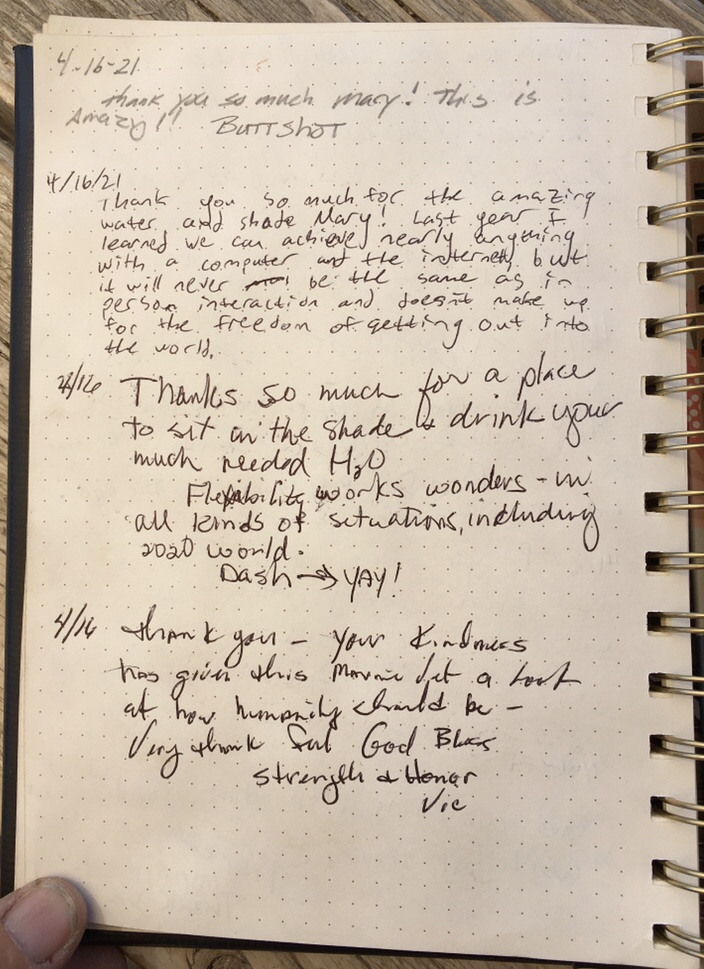 4-16-21
thank you so much mary! This is
Amazy!! BUTTSHOT
4/16/21
Thank you so much for the amazing
water and shade Mary! Last year I
learned we can achieve nearly anything
with a computer and the internet, but
it will never be the same as in
person interaction and doesn't make up
for the freedom of getting out into
the world.
4/16 Thanks so much for a place
to sit in the shade & drink your
much needed H2O
Flexability works wonders - in
all kinds of situations, including
2020 world.
Dash → YAY!
4/16 thank you - your Kindness
has given this Marine Vet a look
at how humanity should be -
Very thank ful God Bless
Strength & Honor
Vic